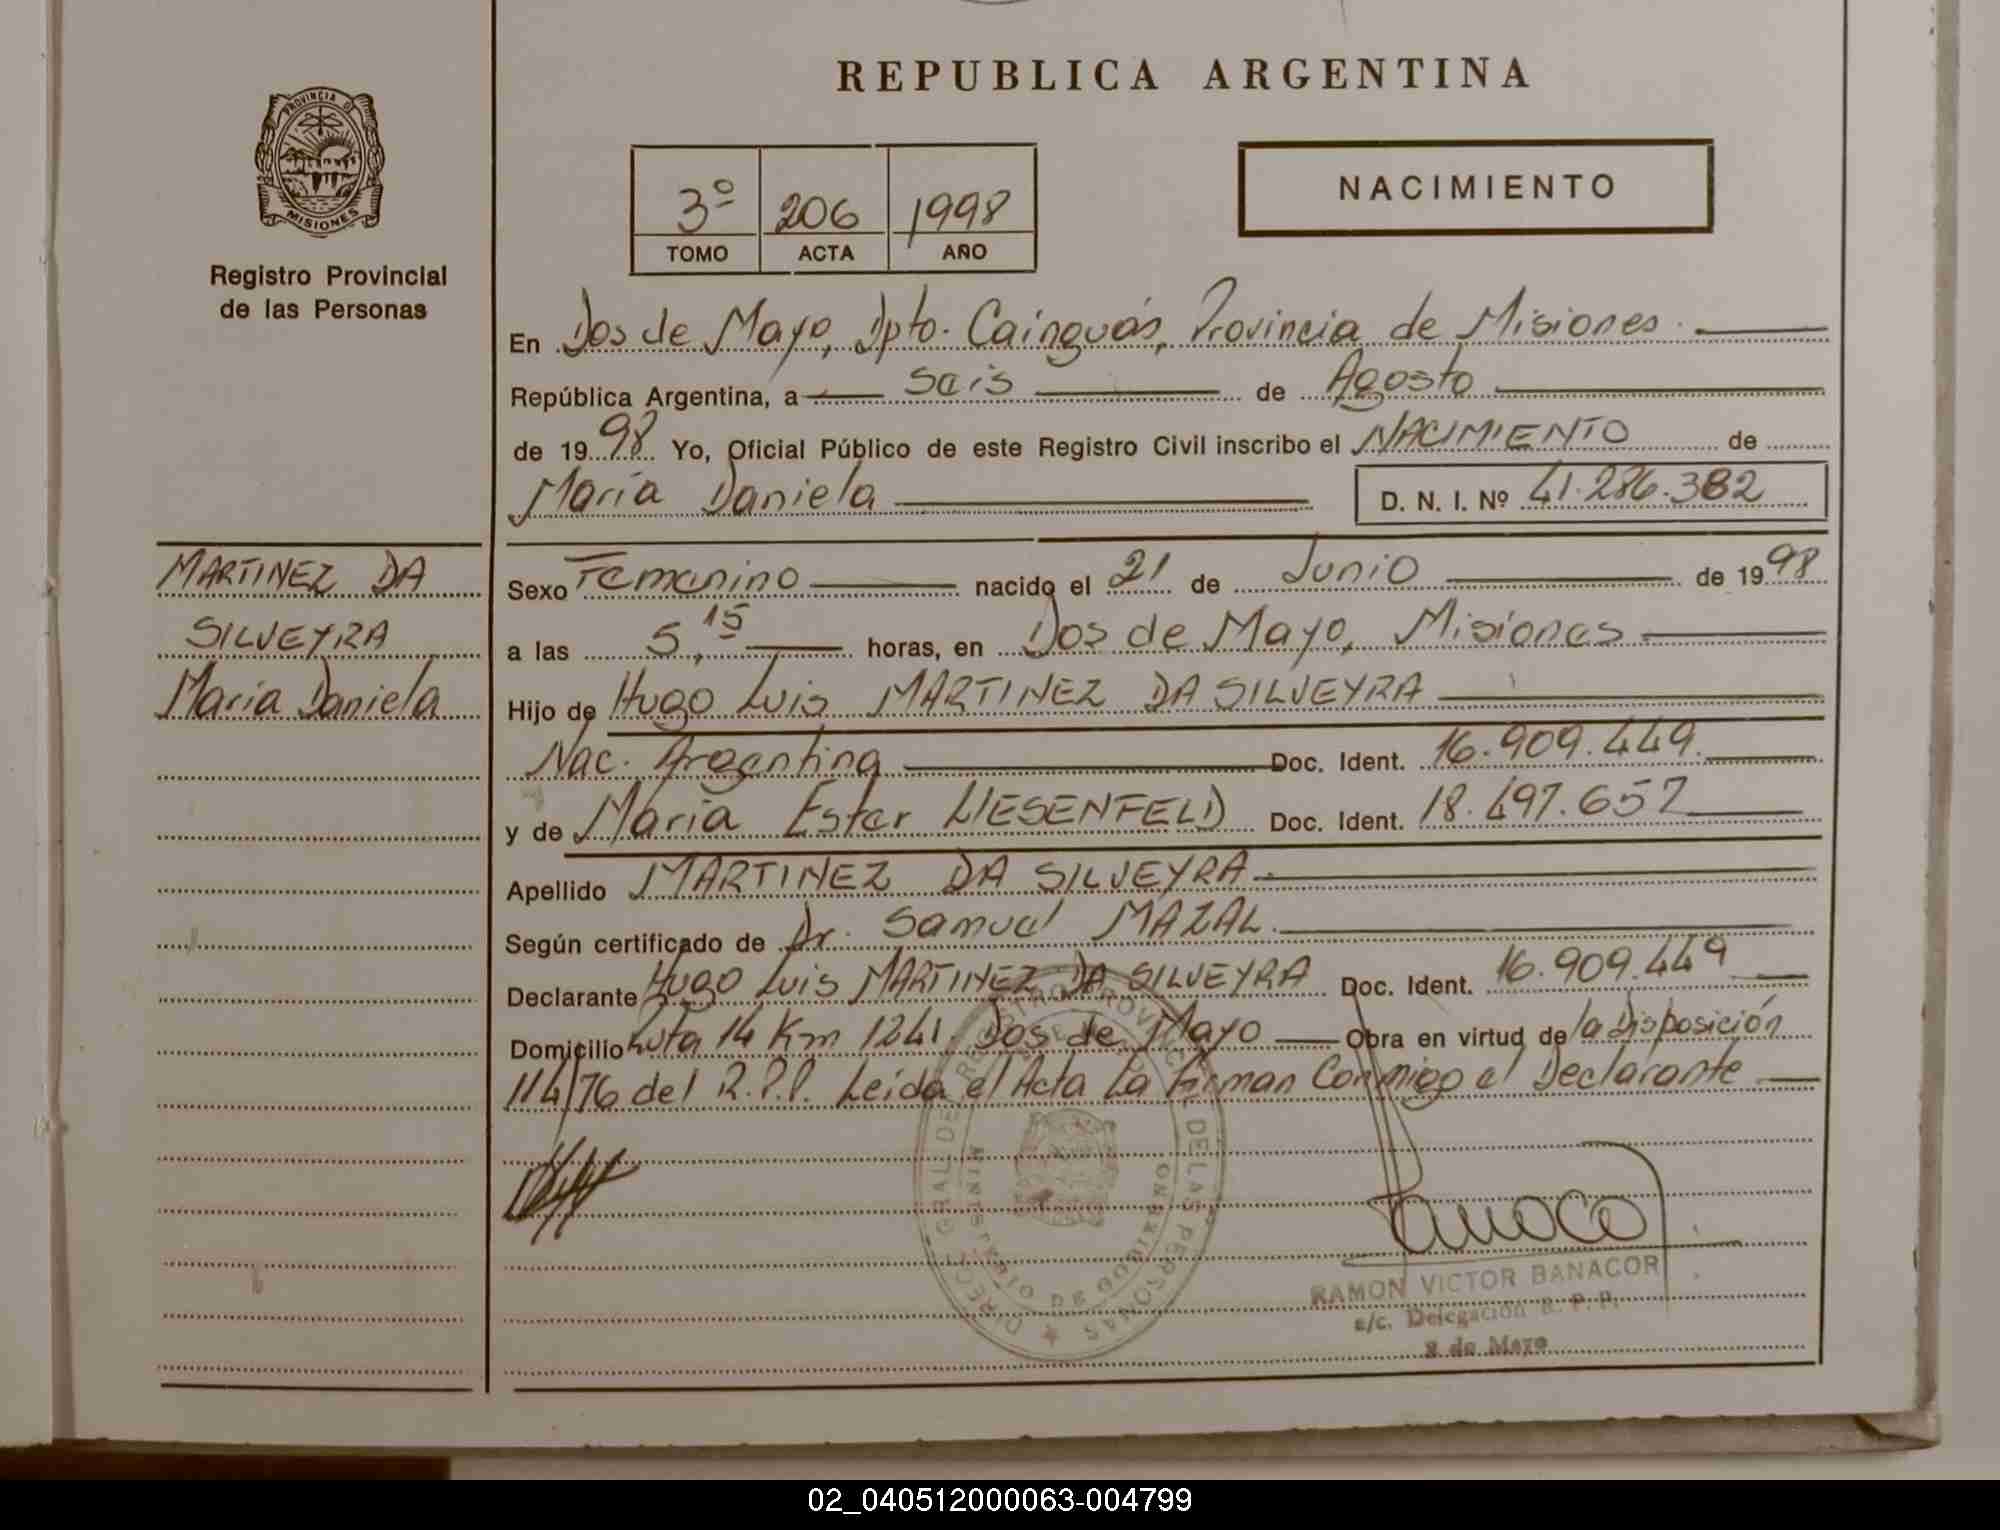 REPUBLICA ARGENTINA
PROVINCIA DE
MISIONES
Registro Provincial
de las Personas
3º 206 1998
TOMO ACTA AÑO
NACIMIENTO
En Dos de Mayo, Dpto. Cainguás, Provincia de Misiones.
República Argentina, a Seis de Agosto
de 1998 Yo, Oficial Público de este Registro Civil inscribo el NACIMIENTO de
María Daniela D. N. I. Nº 41.286.382
MARTINEZ DA
SILVEYRA
María Daniela
Sexo Femenino nacido el 21 de Junio de 1998
a las 5,15 horas, en Dos de Mayo, Misiones
Hijo de Hugo Luis MARTINEZ DA SILVEYRA
Nac. Argentina Doc. Ident. 16.909.449.
y de María Ester LIESENFELD Doc. Ident. 18.497.657
Apellido MARTINEZ DA SILVEYRA
Según certificado de Dr. Samuel MAZAL.
Declarante Hugo Luis MARTINEZ DA SILVEYRA Doc. Ident. 16.909.449
Domicilio Ruta 14 Km 1241 Dos de Mayo Obra en virtud de la Disposición
114/76 del R.P.P. Leida el Acta La Firman Conmigo el Declarante
RAMON VICTOR BANACOR
a/c. Delegación R. P. P.
2 de Mayo
02_040512000063-004799